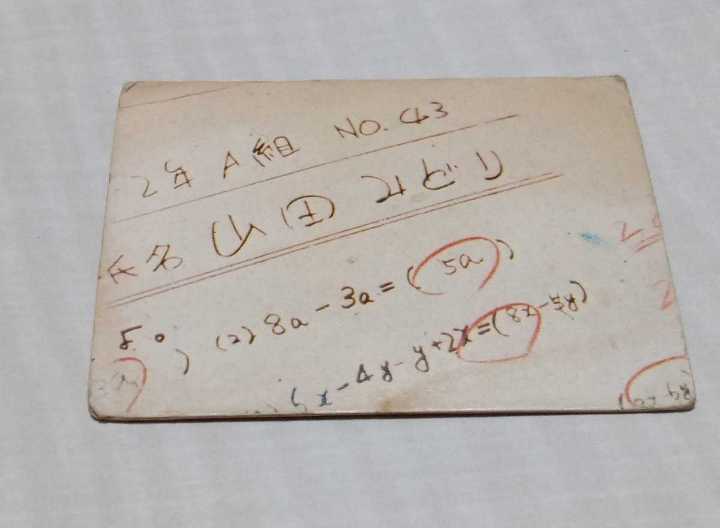 2年 A組 NO. 43
氏名 山田 みどり
(2) 8a - 3a = ( 5a )
6x - 4y - y + 2x = (8x - 5y)